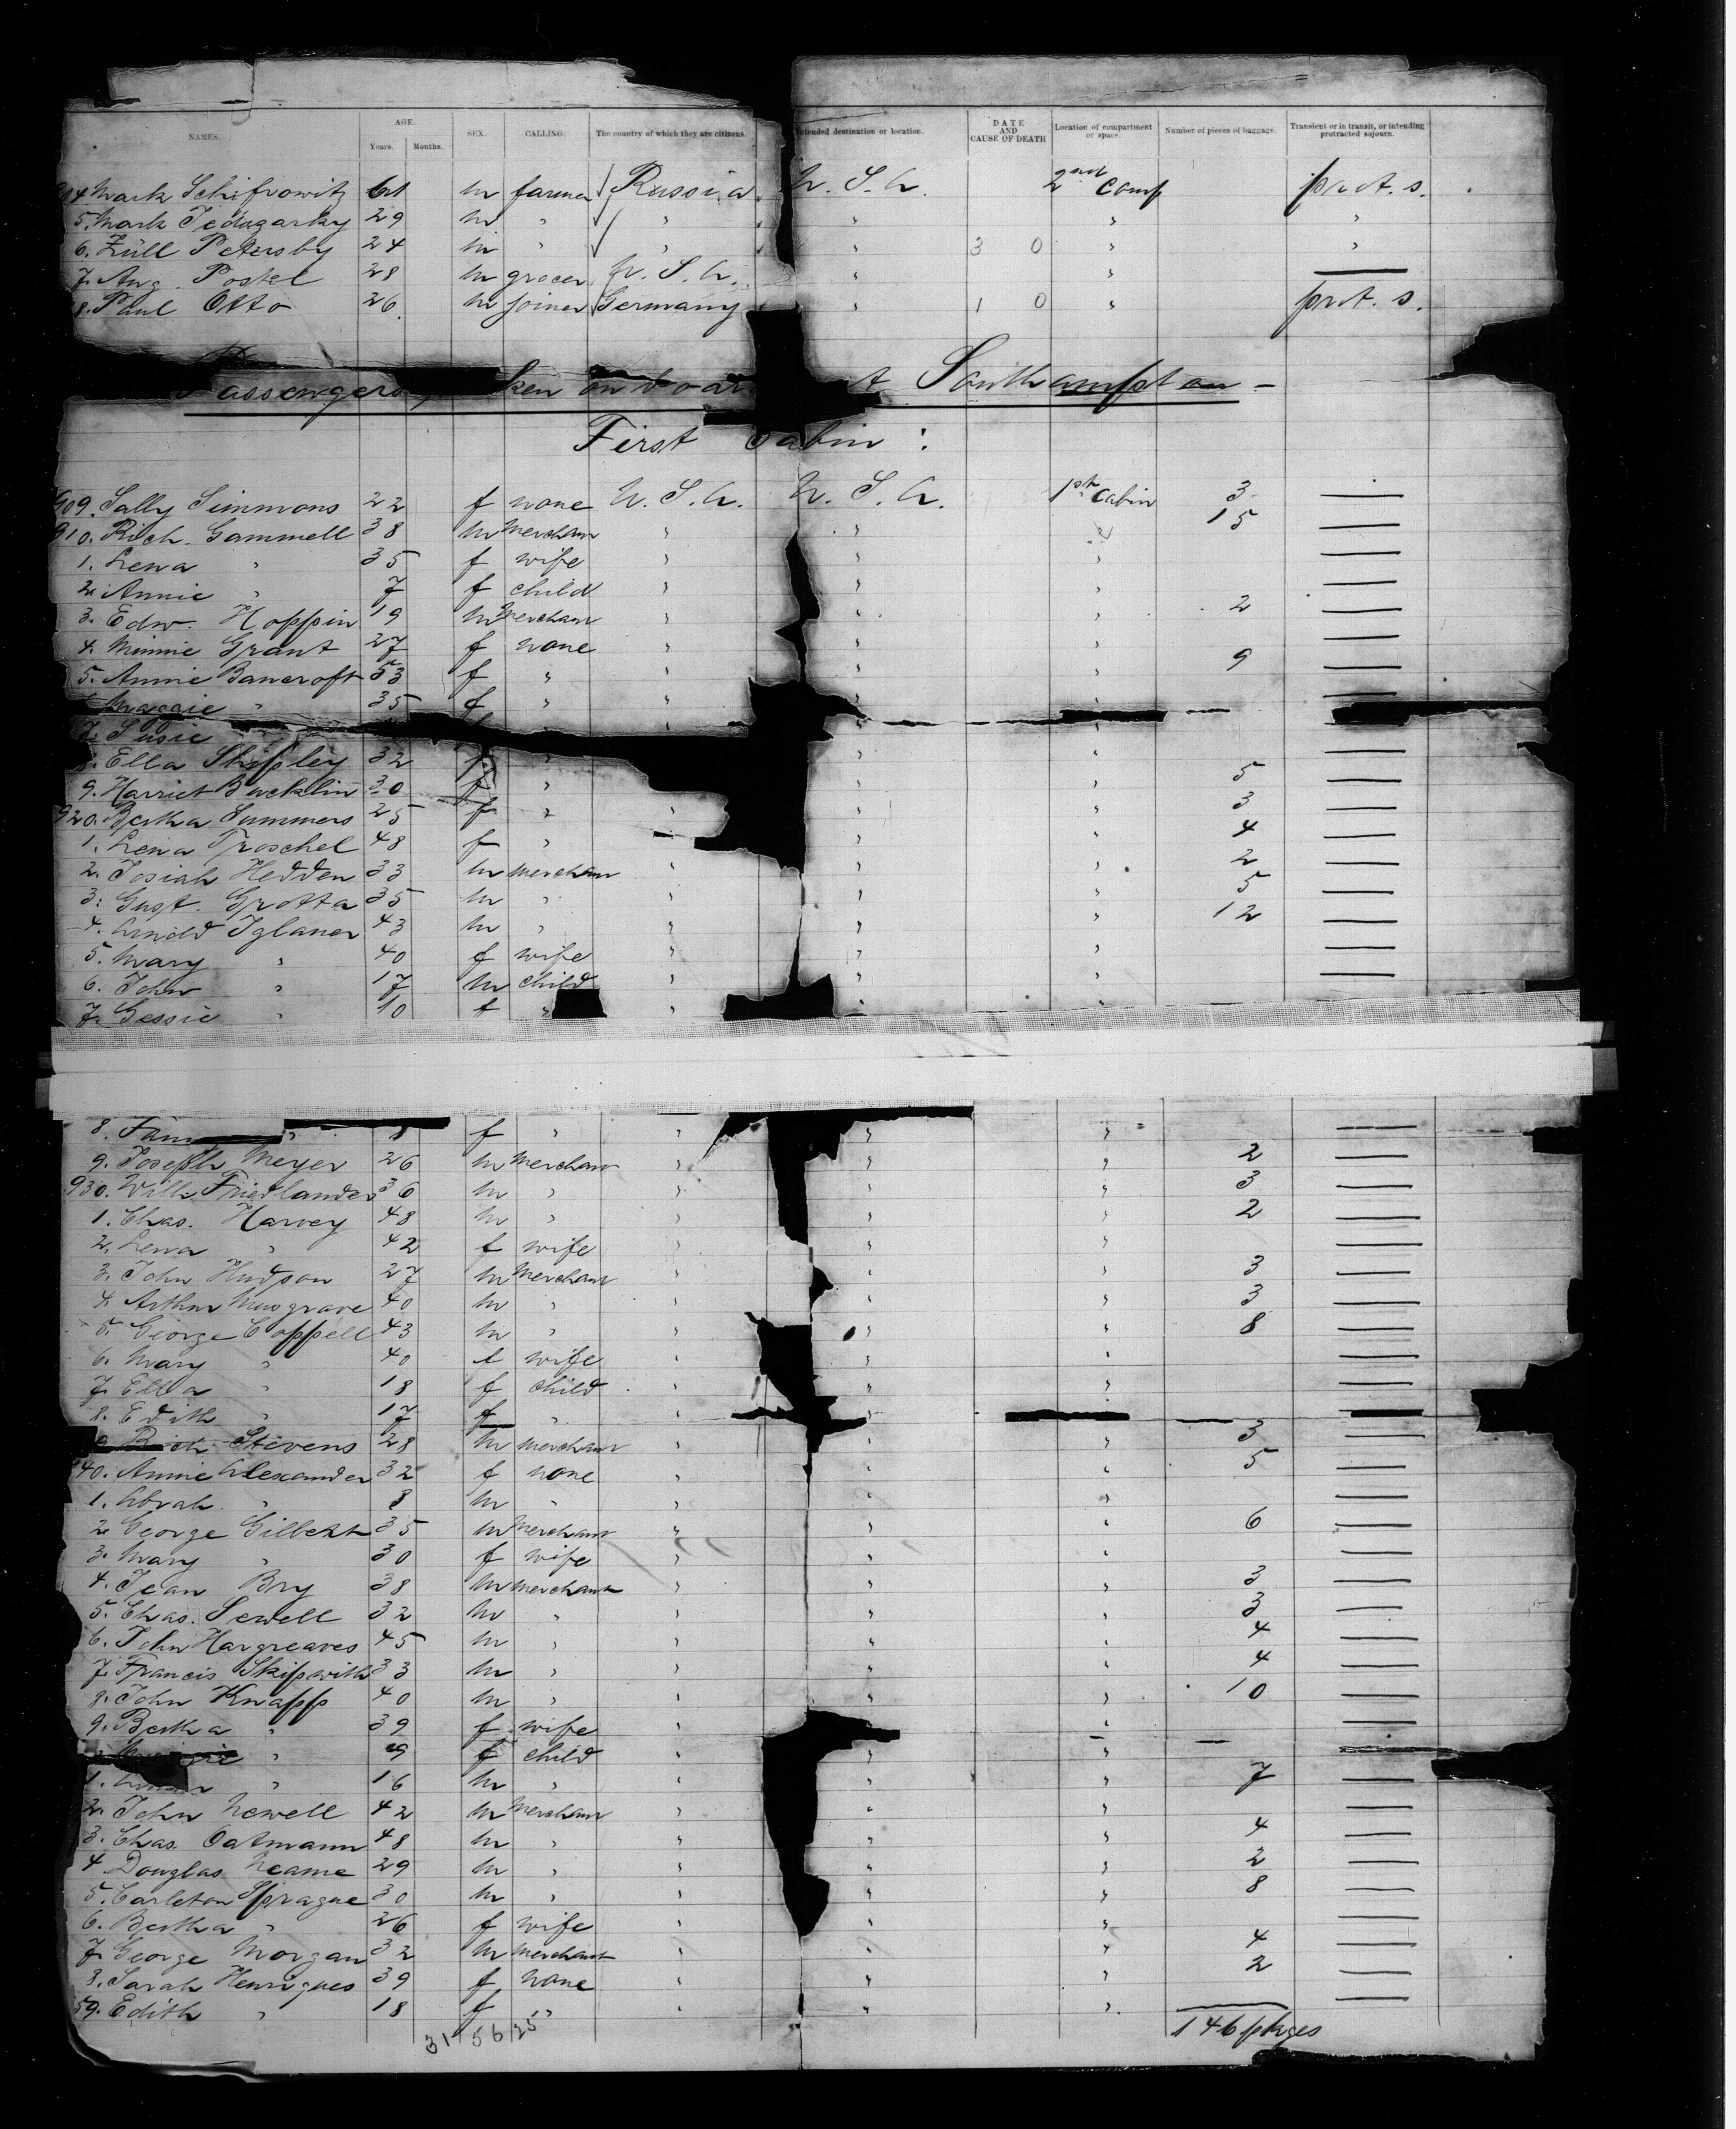 NAMES. AGE. Years. Mouths. SEX. CALLING. The country of which they are citizens. Intended destination or location. DATE AND CAUSE OF DEATH Location of compartment or space. Number of pieces of baggage. Transient or in transit, or intending protracted sojourn.
4 Mark Schifrowitz m farmer Russia U. S. A. 2nd Comp prot. s.
5. Mark 29 m " " " " "
6. Züll Petersby 24 m " " " 3 0 " "
7. Aug. Postel 28 m grocer U. S. A. " " —
8. Paul Otto 26. m joiner Germany " 1 0 " prot. s.
Passengers taken on board at Southampton –
First Cabin :
909. Sally Simmons 22 f none U. S. A. U. S. A. 1st Cabin 3 —
910. Rich. Gammell 38 m merchant " " " 15 —
1. Lena " 35 f wife " " " —
2. Annie " 7 f child " " " —
3. Edw. Hoppin 19 m merchant " " " 2 —
4. Minnie Grant 27 f none " " " —
5. Annie Bancroft 53 f " " " " 9 —
Maggie " 35 f " " " " —
7. Susie " " " —
8. Ella Shipley 32 f " " " —
9. Harriet Bucklin 30 f " " " 5 —
920. Bertha Summers 25 f " " " " 3 —
1. Lena Troschel 48 f " " " 4 —
2. Josiah Hedden 33 m merchant " " " 2 —
3. Gust. Grotta 35 m " " " " 5 —
4. Arnold Iglauer 43 m " " " " 12 —
5. Mary " 40 f wife " " " —
6. John " 17 m child " " " —
7. Gessie " 10 f " " " "
8. " 8 f " " " " —
9. Joseph Meyer 26 m merchant " " " 2 —
930. Willi. Friedlander 36 m " " " " 3 —
1. Chas. Harvey 48 m " " " " 2 —
2. Lena " 42 f wife " " " —
3. John Hudson 27 m merchant " " " 3 —
4. Arthur Musgrave 40 m " " " " 3 —
5. George Coppell 43 m " " " " 8 —
6. Mary " 40 f wife " " " —
7. Ella " 18 f child " " " —
8. Edith " 17 f " " " " —
9 Rich. Stevens 28 m merchant " " " 3 —
40. Annie Alexander 32 f none " " " 5 —
1. Abrah. " 8 m " " " " —
2. George Gilbert 35 m merchant " " " 6 —
3. Mary " 30 f wife " " " —
4. Jean Bry 38 m merchant " " " 3 —
5. Chas. Sewell 32 m " " " " 3 —
6. John Hargreaves 45 m " " " " 4 —
7. Francis Skipwith 33 m " " " " 4 —
8. John Knapp 40 m " " " " 10 —
9. Bertha " 39 f wife " " " —
" 9 f child " " " —
1. " 16 m " " " " 7 —
2. John Newell 42 m merchant " " " —
3. Chas. Oatmann 48 m " " " " 4 —
4. Douglas Neame 29 m " " " " 2 —
5. Carleton Sprague 30 m " " " " 8 —
6. Bertha " 26 f wife " " " —
7. George Morgan 32 m merchant " " " 4 —
8. Sarah Henriques 39 f none " " " 2 —
59. Edith " 18 f " " " " —
31 56 25 146 pkges